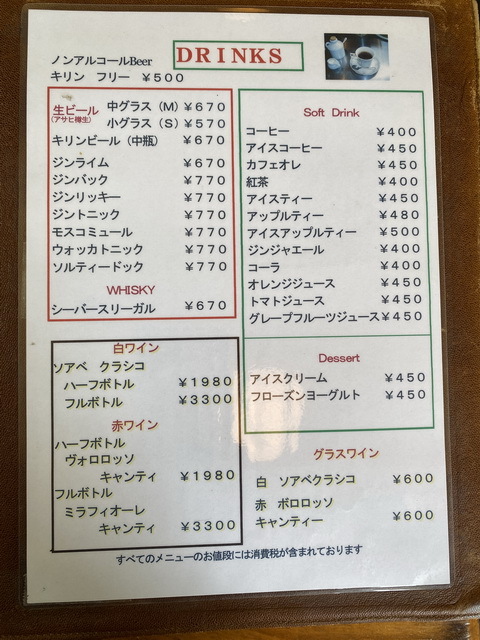 DRINKS
ノンアルコールBeer
キリン フリー ￥500
生ビール 中グラス（M）￥670
(アサヒ樽生) 小グラス（S）￥570
キリンビール（中瓶） ￥670
ジンライム ￥670
ジンバック ￥770
ジンリッキー ￥770
ジントニック ￥770
モスコミュール ￥770
ウォッカトニック ￥770
ソルティードック ￥770
WHISKY
シーバースリーガル ￥670
Soft Drink
コーヒー ￥400
アイスコーヒー ￥450
カフェオレ ￥450
紅茶 ￥400
アイスティー ￥450
アップルティー ￥480
アイスアップルティー ￥500
ジンジャエール ￥400
コーラ ￥400
オレンジジュース ￥450
トマトジュース ￥450
グレープフルーツジュース ￥450
Dessert
アイスクリーム ￥450
フローズンヨーグルト ￥450
白ワイン
ソアベ クラシコ
ハーフボトル ￥1980
フルボトル ￥3300
赤ワイン
ハーフボトル
ヴォロロッソ
キャンティ ￥1980
フルボトル
ミラフィオーレ
キャンティ ￥3300
グラスワイン
白 ソアベクラシコ ￥600
赤 ボロロッソ
キャンティー ￥600
すべてのメニューのお値段には消費税が含まれております